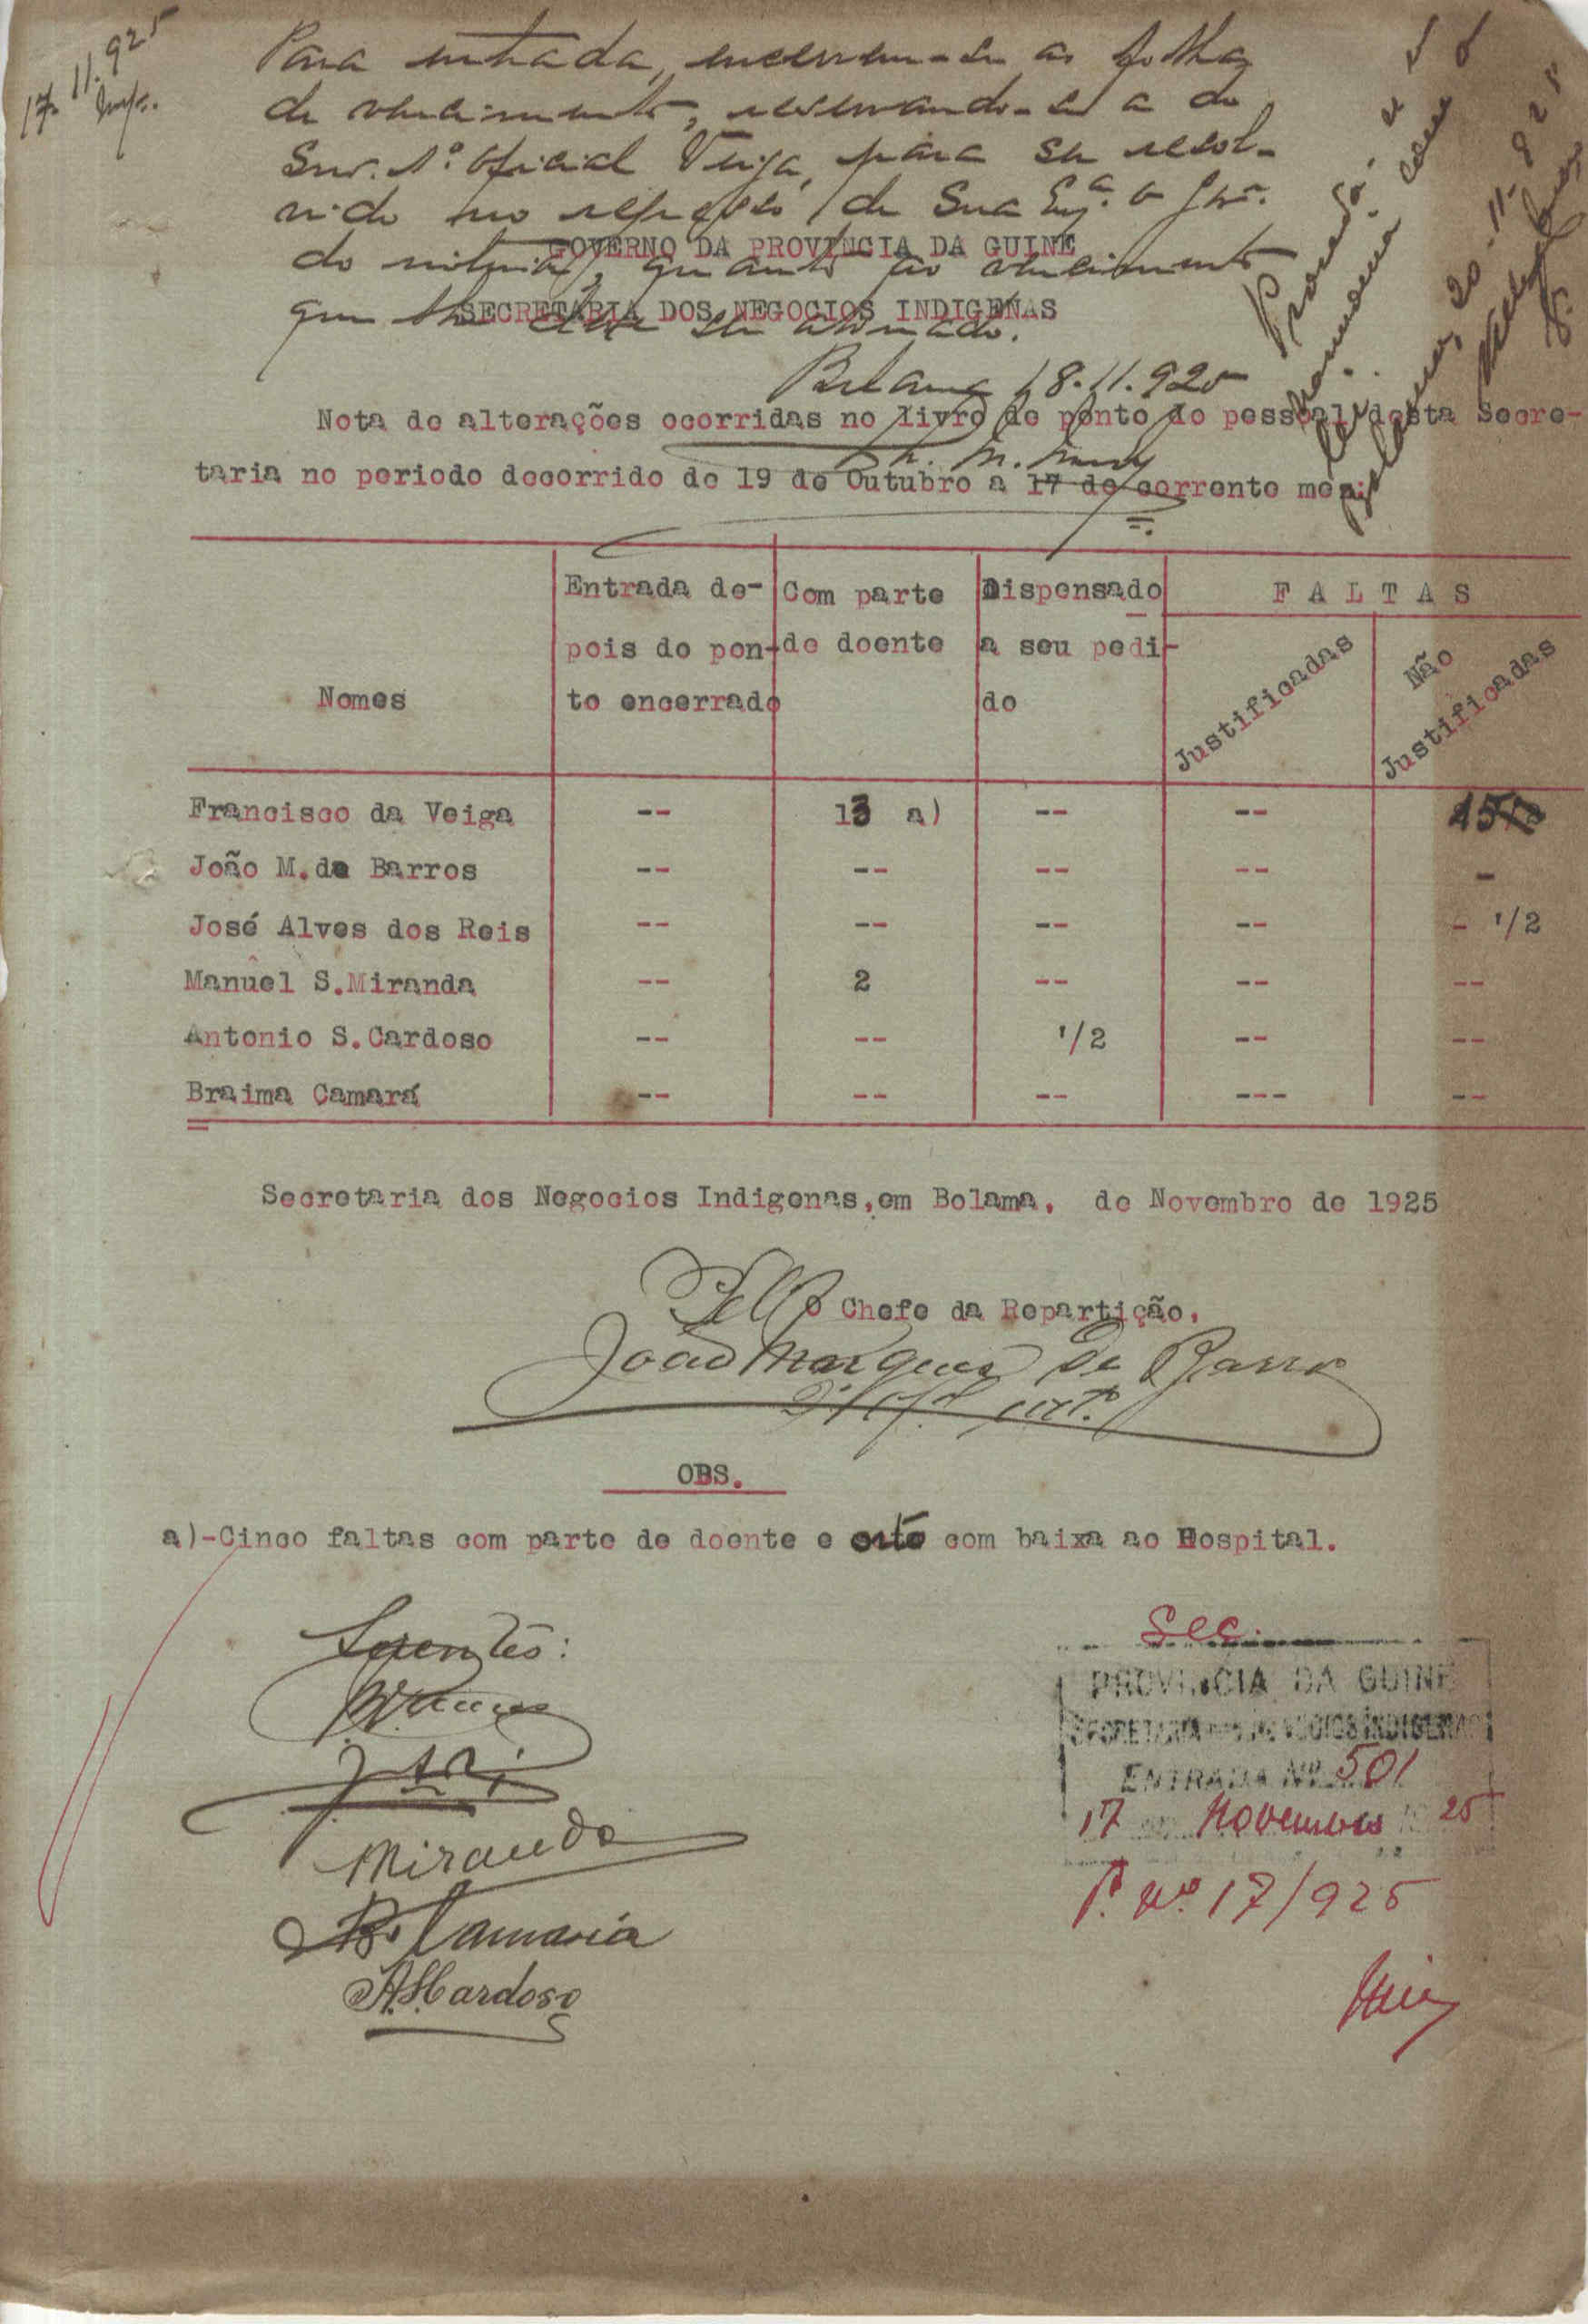 17. 11. 925
Para entrada, encerrem-se as folhas
de vencimentos, reservando-se a do
Snr. 1º. Oficial Veiga, para ser resol-
vido no regresso de Sua Exª. o
GOVERNO DA PROVINCIA DA GUINÉ
do quanto ao vencimento
SECRETARIA DOS NEGOCIOS INDIGENAS
que lhe deve ser abonado.
Bolama 18.11.925
Nota de alterações ocorridas no livro de ponto do pessoal desta Secre-
taria no periodo decorrido de 19 de Outubro a 17 do corrente mês:
20-11-925
Nomes
Entrada de-
pois do pon-
to encerrado
Com parte
de doente
Dispensado
a seu pedi-
do
FALTAS
Justificadas
Não
Justificadas
Francisco da Veiga -- 13 a) -- --
João M. de Barros -- -- -- -- -
José Alves dos Reis -- -- -- -- - 1/2
Manuel S.Miranda -- 2 -- -- --
Antonio S.Cardoso -- -- 1/2 -- --
Braima Camará -- -- -- --- --
Secretaria dos Negocios Indigenas,em Bolama, de Novembro de 1925
Pelo O Chefe da Repartição,
João Marques de Barros
2º Ofal intº.
OBS.
a)-Cinco faltas com parte de doente e oito com baixa ao Hospital.
Scientes:
Miranda
B. Camará
A.S.Cardoso
Sec.
PROVINCIA DA GUINÉ
SECRETARIA DOS NEGOCIOS INDIGENAS
ENTRADA Nº 501
17 de Novembro 1925
P. nº 17/925